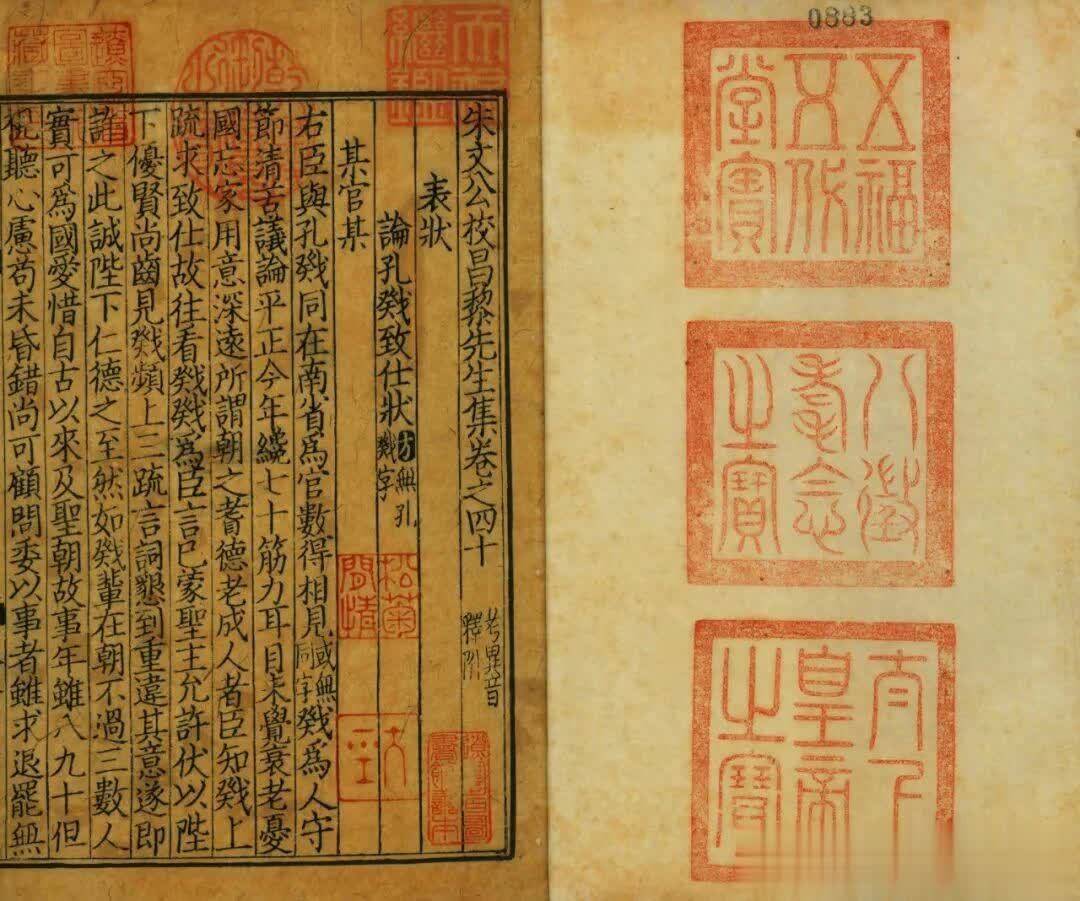 0883
五福
五代
堂寶
八徵
耄念
之寶
太上
皇帝
之寶
朱文公校昌黎先生集卷之四十
考異音
釋附
表狀
論孔戣致仕狀
方無孔
戣字
某官某
右臣與孔戣同在南省爲官數得相見或無同字戣爲人守
節清苦議論平正今年纔七十筋力耳目未覺衰老憂
國忘家用意深遠所謂朝之耆德老成人者臣知戣上
疏求致仕故往看戣戣爲臣言已蒙聖主允許伏以陛
下優賢尚齒見戣頻上三疏言詞懇到重違其意遂即
許之此誠陛下仁德之至然如戣輩在朝不過三數人
實可爲國愛惜自古以來及聖朝故事年雖八九十但
視聽心慮苟未昏錯尚可顧問委以事者雖求退罷無
天祿
繼鑑
松菊
閒情